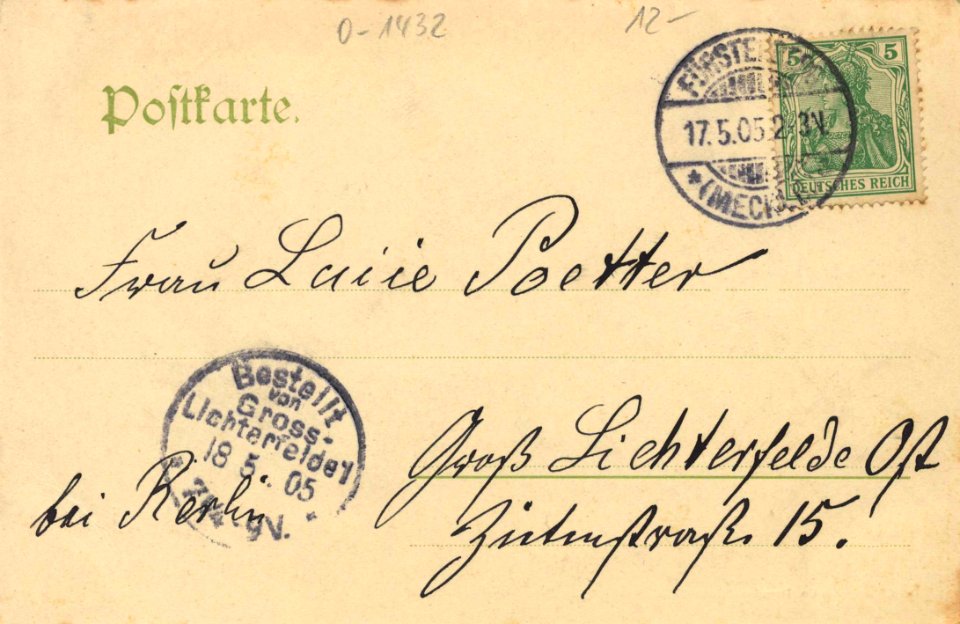 0-1432
12-
Postkarte.
5 5
DEUTSCHES REICH
17.5.05 2-3N.
* (MECKL.)
Frau Lucie Poetter
Bestellt
von
Gross-
Lichterfelde 1
18 5. 05
9V.
Groß Lichterfelde Ost
bei Berlin
15.